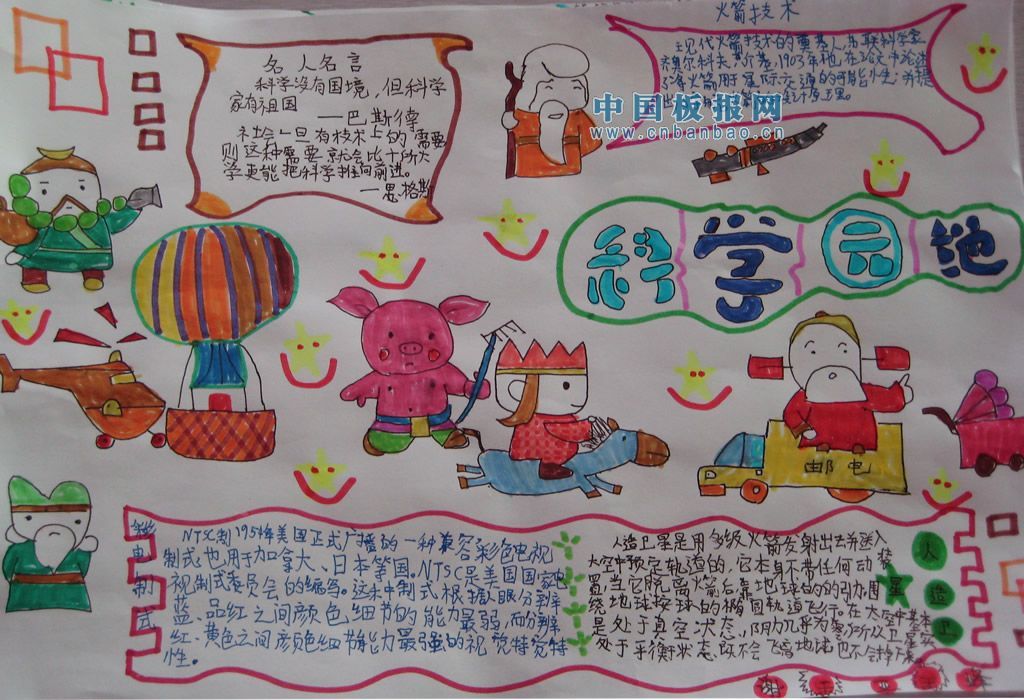 火箭技术
名人名言
科学没有国境，但科学
家有祖国
—巴斯德
社会一旦有技术上的需要
则这种需要就会比十所大
学更能把科学推向前进。
—恩格斯
现代火箭技术的奠基人
中国板报网
www.cnbanbao.cn
科学园地
邮电
彩电制式
NTSC制1954年美国正式广播的一种兼容彩色电视
制式也用于加拿大、日本等国。NTSC是美国国家电
视制式委员会的编写。这种制式根据人眼分辨
蓝、品红之间颜色细节的能力最弱，而分辨
红、黄色之间颜色细节能力最强的视觉特
性。
人造卫星
人造卫星是用多级火箭发射出去并送入
太空中预定轨道的，它本身不带任何动
装置当它脱离火箭后，靠地球的引力围
绕地球按的椭圆轨道飞行。在太空中基本
是处于真空状态，阻力几乎为零所以卫星
处于平衡状态，既不会飞离地球也不会掉下来。